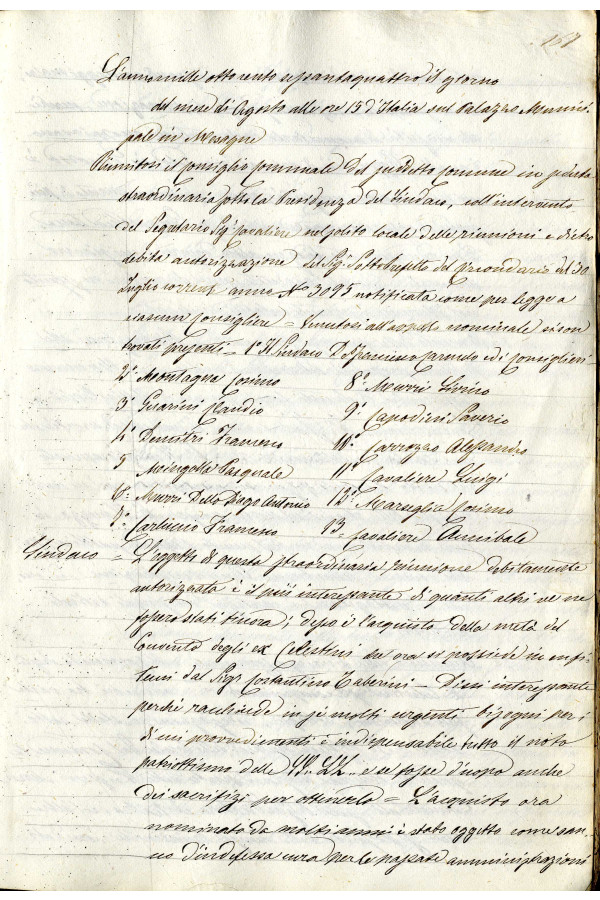 157
L'anno mille ottocento settantaquattro il giorno
del mese di Agosto alle ore 15 d'Italia sul Palazzo Munici
pale in Mesagne
Riunitosi il Consiglio Comunale del suddetto Comune in seduta
straordinaria sotto la Presidenza del Sindaco, coll'intervento
del Segretario Sig. Cavaliere nel solito locale delle riunioni e dietro
debita autorizzazione del Sig. Sottoprefetto del Circondario del 30
Luglio corrente anno No 3095 notificata come per legge a
ciascun Consigliere = Tenutosi all'appello nominale si son
trovati presenti = 1o Il Sindaco D. ed i Consiglieri =
2o Montagna Cosimo 8o Murri
3o Guarini Claudio 9o Capodieci Saverio
4o Demitri Francesco 10o Carrozzo Alessandro
5 Moingolla Pasquale 11o Cavaliere Luigi
6o Murri Dello Diago Antonio 12o Maraglia Cosimo
7o Carluccio Francesco 13. Cavaliere Annibale
Sindaco = L'oggetto di questa straordinaria riunione debitamente
autorizzata è il più interessante di quanti altri ve ne
fossero stati finora; desso è l'acquisto della metà del
Convento degli ex Celestini che ora si possiede in enfi
teusi dal Sig. Costantino Taberini = Dissi interessante
perchè racchiude in sè molti urgenti bisogni per i
di cui provvedimenti è indispensabile tutto il noto
patriottismo delle SS. LL. e se fosse d'uopo anche
dei sacrifizi per ottenerlo = L'acquisto ora
nominato da molti anni è stato oggetto come san
no d'indefessa cura per le passate amministrazioni